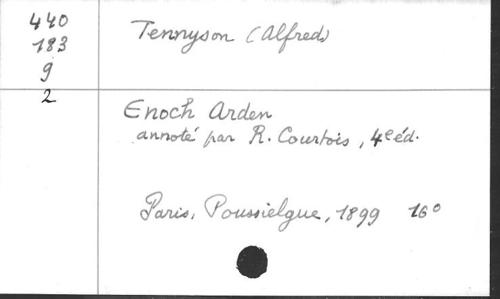 440
183
9
2
Tennyson (Alfred)
Enoch Arden
annoté par R. Courtois, 4e éd.
Paris, Poussielgue, 1899 16°